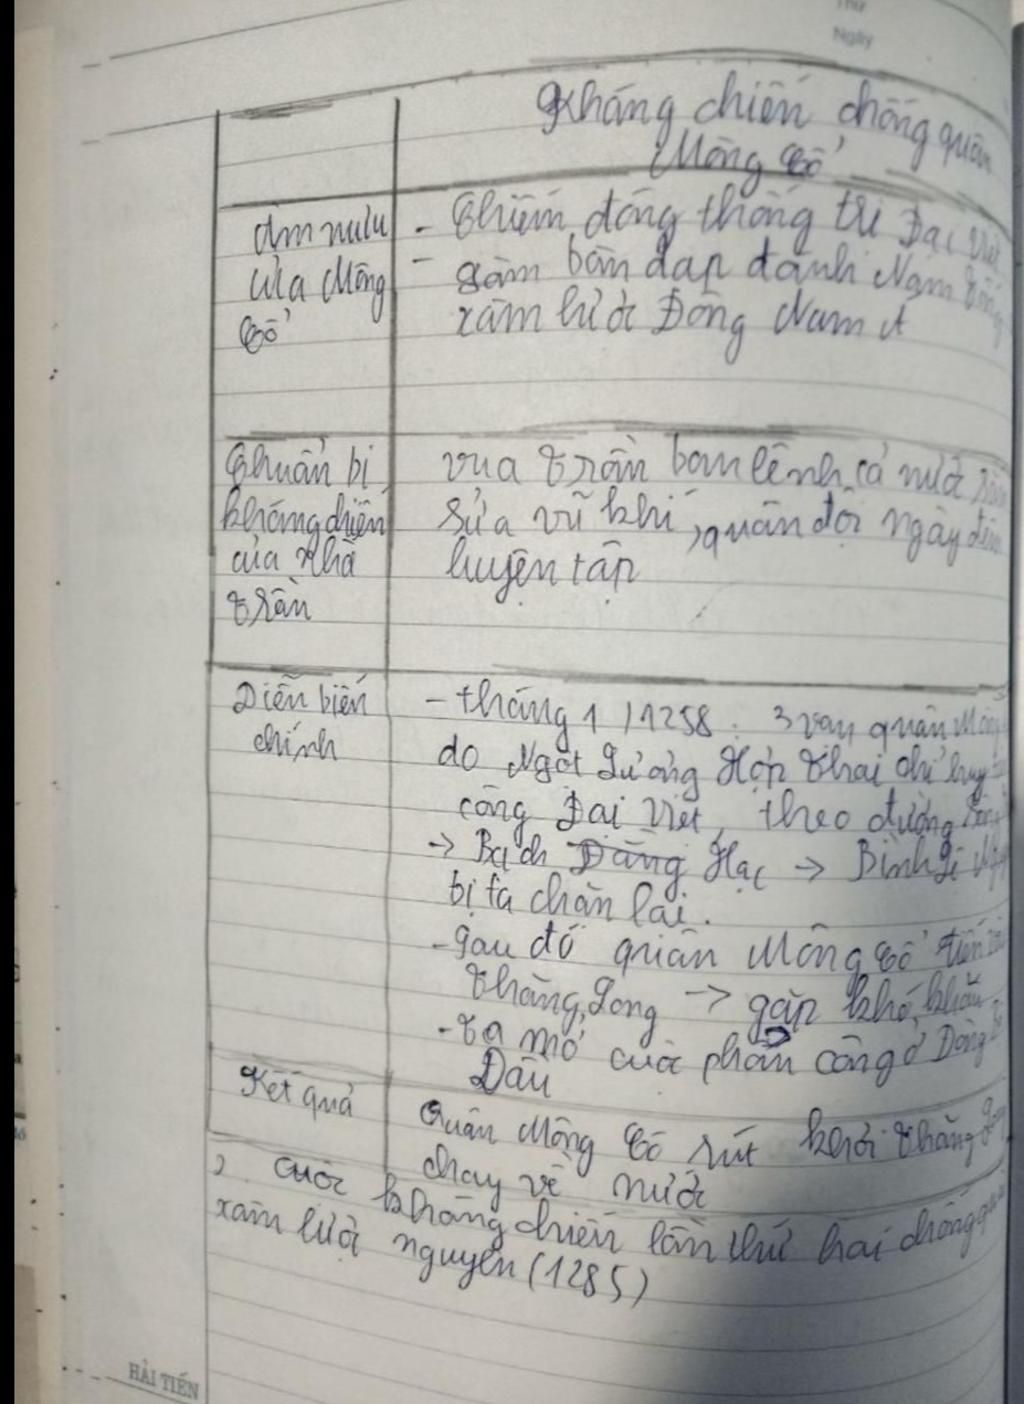 Thứ
Ngày
Kháng chiến chống quân
Mông Cổ
Âm mưu
của Mông
Cổ
- Chiếm đóng thống trị Đại Việt
- Làm bàn đạp đánh Nam Tống
xâm lược Đông Nam Á
Chuẩn bị
kháng chiến
của nhà
Trần
vua Trần ban lệnh cả nước sắm
sửa vũ khí, quân đội ngày đêm
luyện tập
Diễn biến
chính
- tháng 1/1258: 3 vạn quân Mông
do Ngột Lương Hợp Thai chỉ huy
công Đại Việt, theo đường sông
→ Bạch Đằng Hạc → Bình Lệ
bị ta chặn lại.
- Sau đó quân Mông Cổ tiến
Thăng Long → gặp khó khăn
- Ta mở cuộc phản công ở Đông
Đầu
Kết quả
Quân Mông Cổ rút khỏi Thăng Long
chạy về nước
, cuộc kháng chiến lần thứ hai chống quân
xâm lược nguyên (1285)
HẢI TIẾN